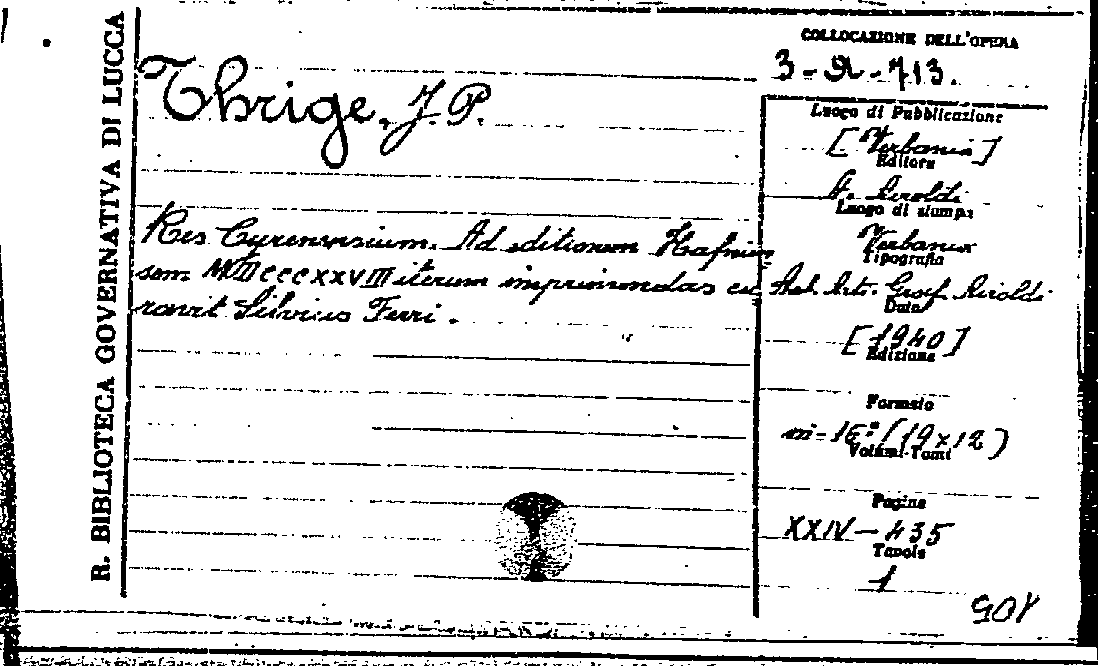 R. BIBLIOTECA GOVERNATIVA DI LUCCA
Thrige, J. P.
Res Cyrenensium. Ad editionem Hafnien
sem MDCCCXXVIII iterum imprimendas cu
ravit Silvius Ferri.
COLLOCAZIONE DELL'OPERA
3-A-713.
Luogo di Pubblicazione
[Verbania]
Editore
A. Airoldi
Luogo di stampa
Verbania
Tipografia
Arti. Graf. Airoldi
Data
[1940]
Edizione
Formato
in-16º (19x12)
Volumi-Tomi
Pagine
XXIV-435
Tavole
1